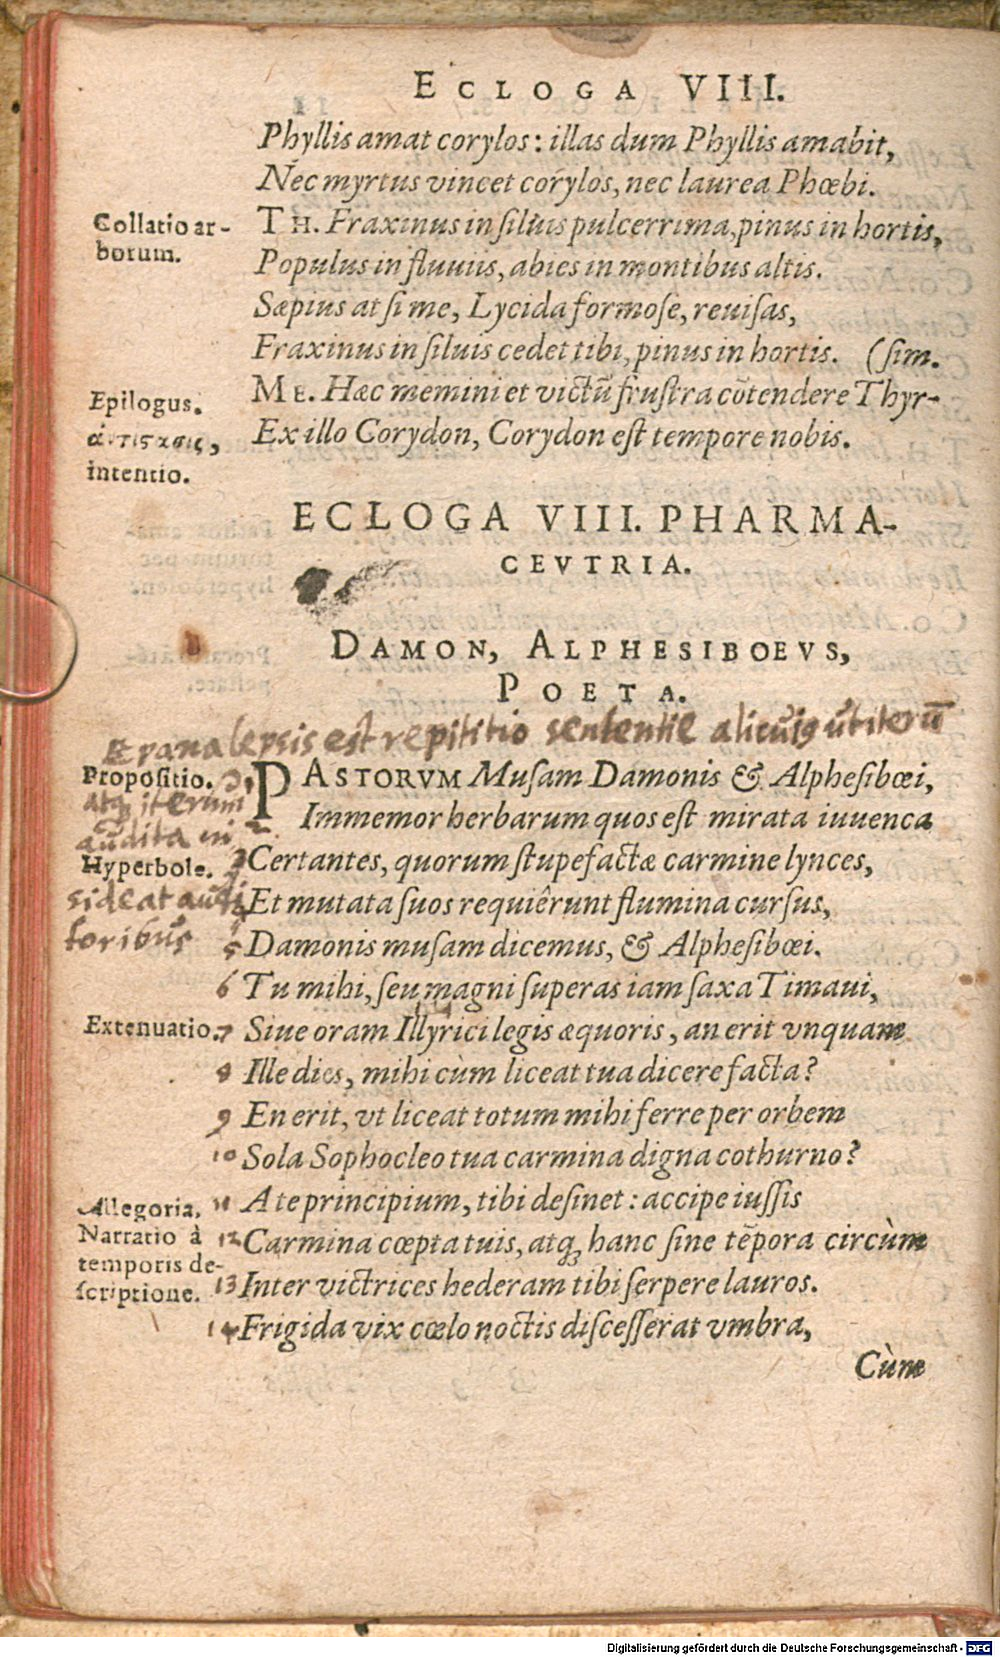 ECLOGA VIII.
Phyllis amat corylos: illas dum Phyllis amabit,
Nec myrtus vincet corylos, nec laurea Phœbi.
Collatio ar-
borum.
TH. Fraxinus in siluis pulcerrima, pinus in hortis,
Populus in fluuiis, abies in montibus altis.
Sæpius at si me, Lycida formose, reuisas,
Fraxinus in siluis cedet tibi, pinus in hortis. (sim.
Epilogus.
ἀντιστασις,
intentio.
ME. Hæc memini et victū frustra cōtendere Thyr-
Ex illo Corydon, Corydon est tempore nobis.
ECLOGA VIII. PHARMA-
CEVTRIA.
DAMON, ALPHESIBOEVS,
POETA.
Epanalepsis est repititio sententiæ alicuiꝯ ut iterū
atq iterum
audita in
sideat audi
toribus
Propositio.
PASTORVM Musam Damonis & Alphesibœi,
2 Immemor herbarum quos est mirata iuuenca
Hyperbole.
3 Certantes, quorum stupefactæ carmine lynces,
Et mutata suos requiêrunt flumina cursus,
5 Damonis musam dicemus, & Alphesibœi.
6 Tu mihi, seu magni superas iam saxa Timaui,
Extenuatio.
7 Siue oram Illyrici legis æquoris, an erit vnquam
8 Ille dies, mihi cùm liceat tua dicere facta?
9 En erit, vt liceat totum mihi ferre per orbem
10 Sola Sophocleo tua carmina digna cothurno?
Allegoria.
Narratio à
temporis de-
scriptione.
11 A te principium, tibi desinet: accipe iussis
12 Carmina cœpta tuis, atq; hanc sine tēpora circùm
13 Inter victrices hederam tibi serpere lauros.
14 Frigida vix cœlo noctis discesserat vmbra,
Cùm
Digitalisierung gefördert durch die Deutsche Forschungsgemeinschaft - DFG